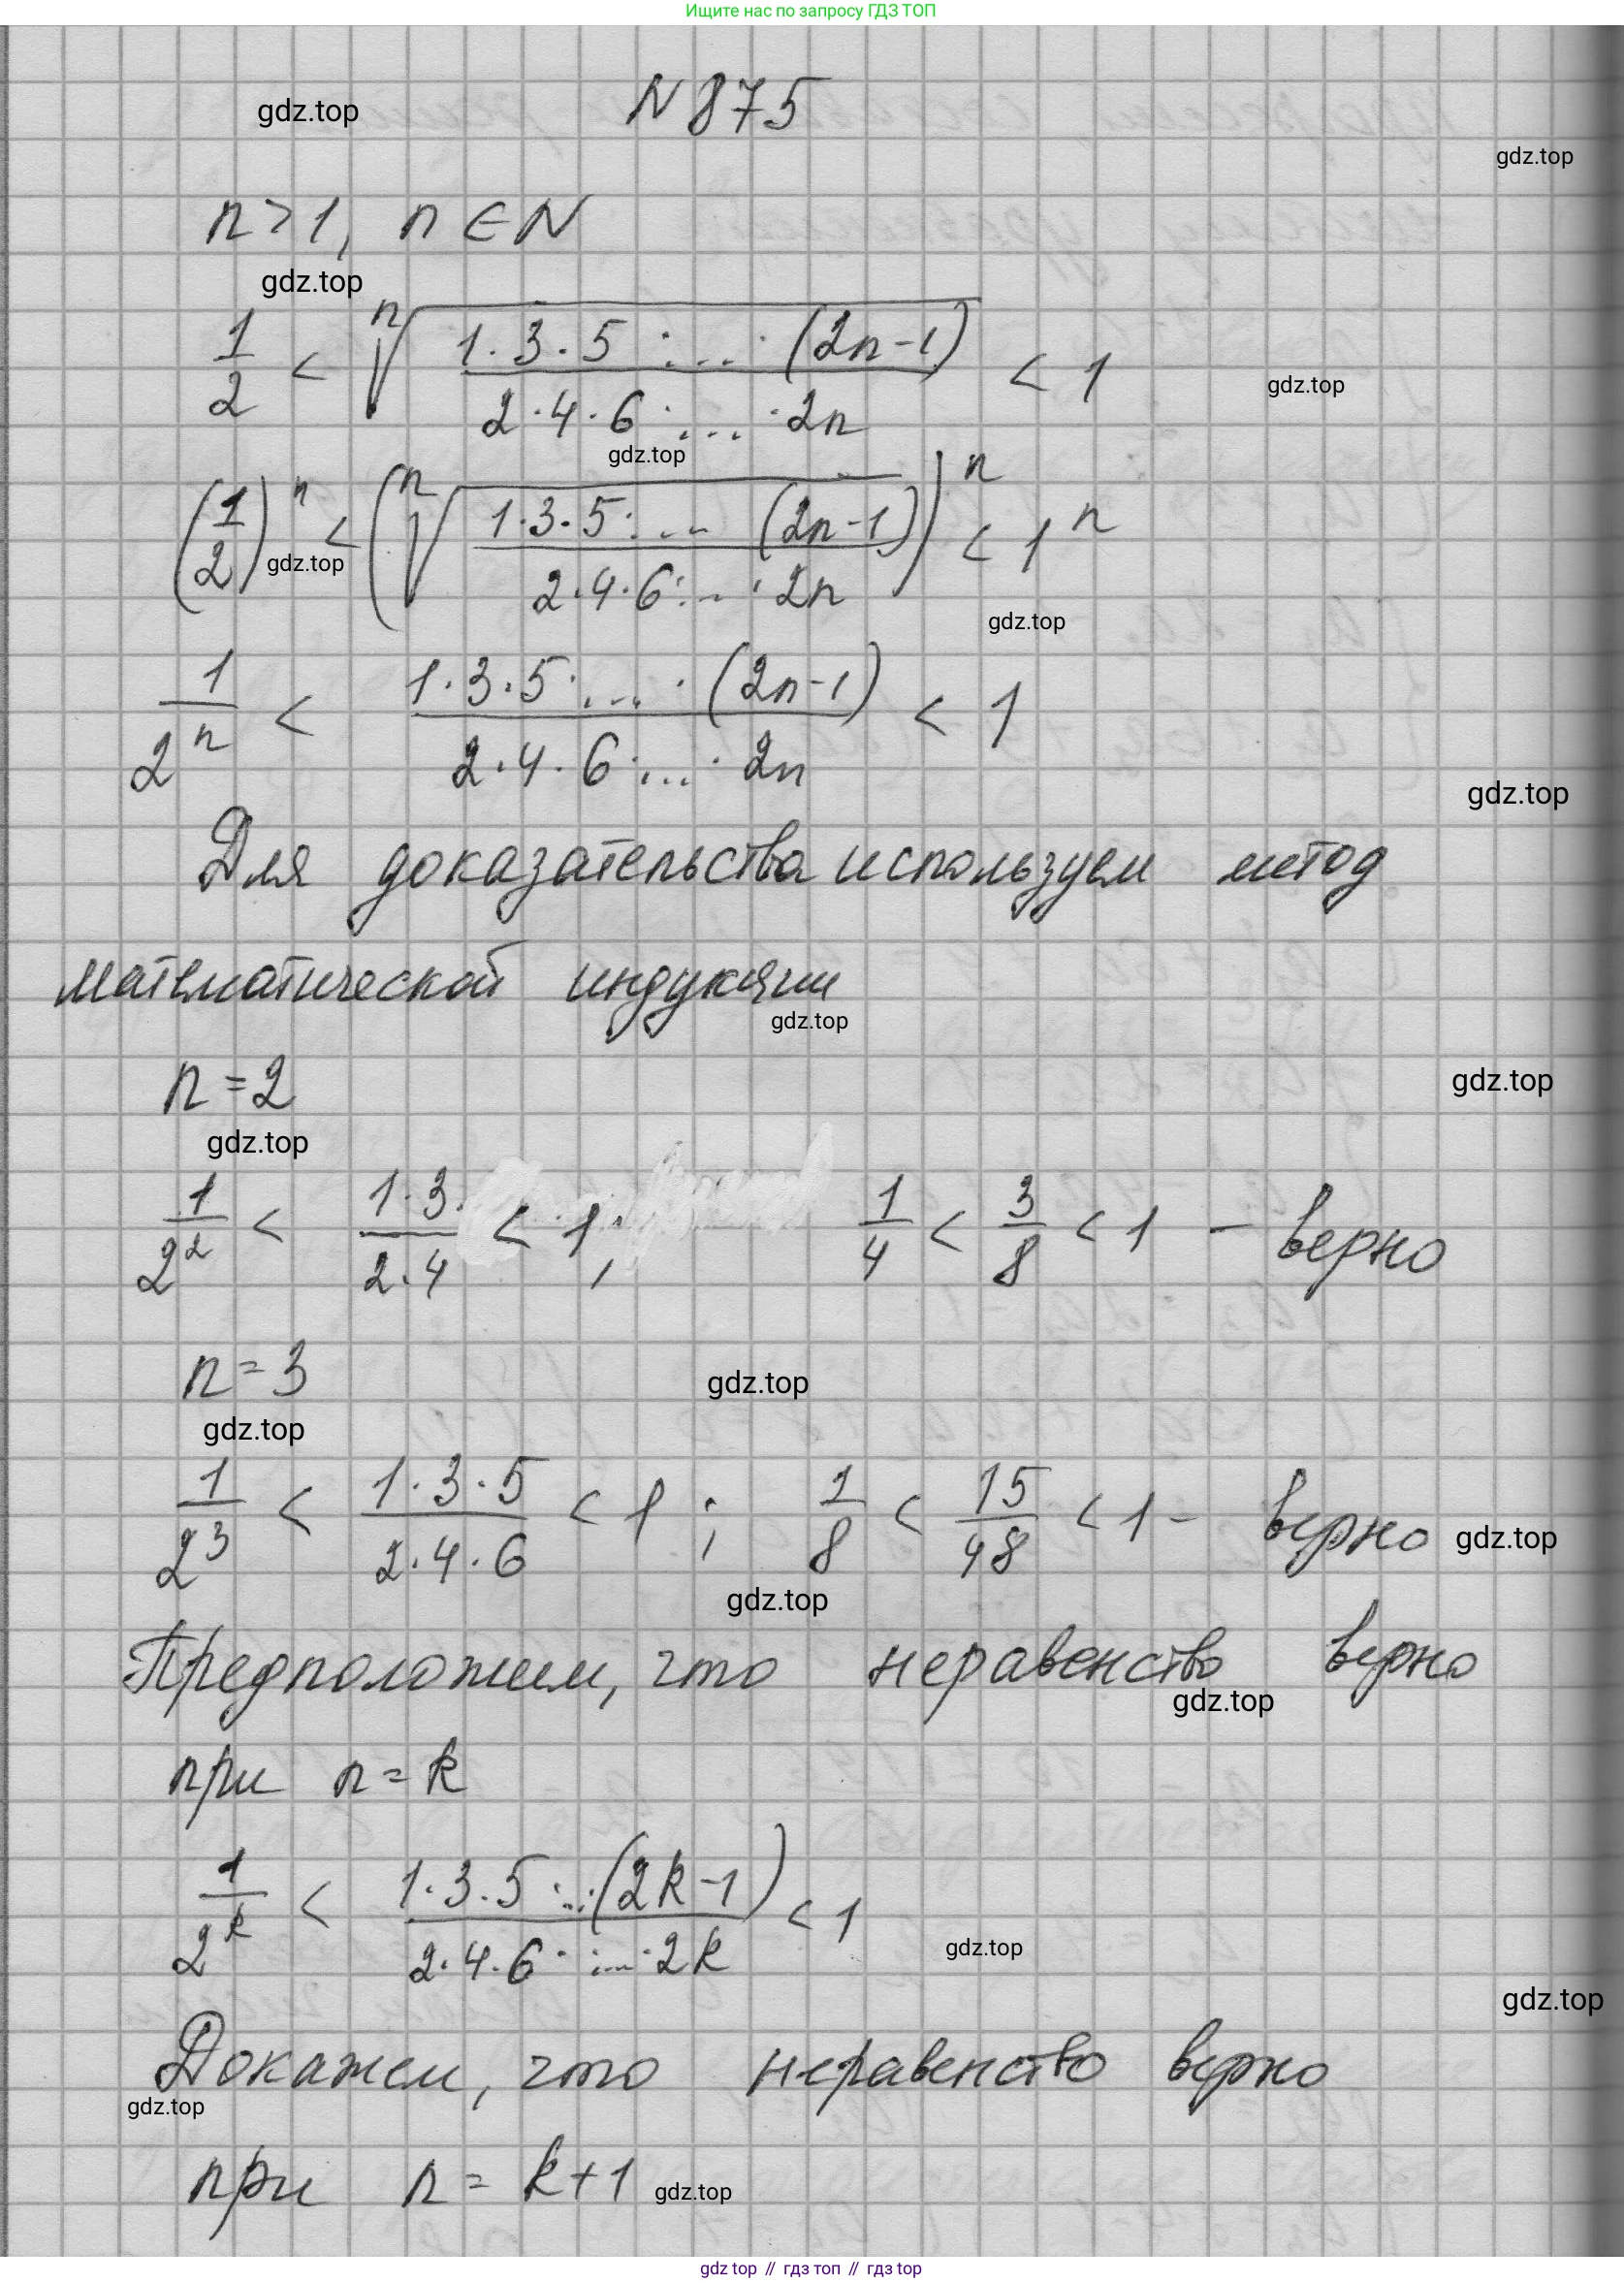 Ищите нас по запросу ГДЗ ТОП
gdz.top N 875
gdz.top
n > 1, n ∈ N
gdz.top
1/2 < ⁿ√(1·3·5·...·(2n-1) / 2·4·6·...·2n) < 1 gdz.top
gdz.top
(1/2)ⁿ < (ⁿ√(1·3·5·... (2n-1) / 2·4·6·...·2n))ⁿ < 1ⁿ
gdz.top
gdz.top
1/2ⁿ < 1·3·5·...·(2n-1) / 2·4·6·...·2n < 1
gdz.top
Для доказательства используем метод
математической индукции
gdz.top
n = 2
gdz.top
gdz.top
1/2² < 1·3/2·4 < 1; 1/4 < 3/8 < 1 - верно
n = 3
gdz.top
gdz.top
1/2³ < 1·3·5/2·4·6 < 1; 1/8 < 15/48 < 1 - верно gdz.top
gdz.top
Предположим, что неравенство верно
gdz.top
при n = k
1/2ᵏ < 1·3·5·...·(2k-1) / 2·4·6·...·2k < 1
gdz.top
gdz.top
Докажем, что неравенство верно
gdz.top
при n = k+1 gdz.top
gdz top // гдз топ // gdz top